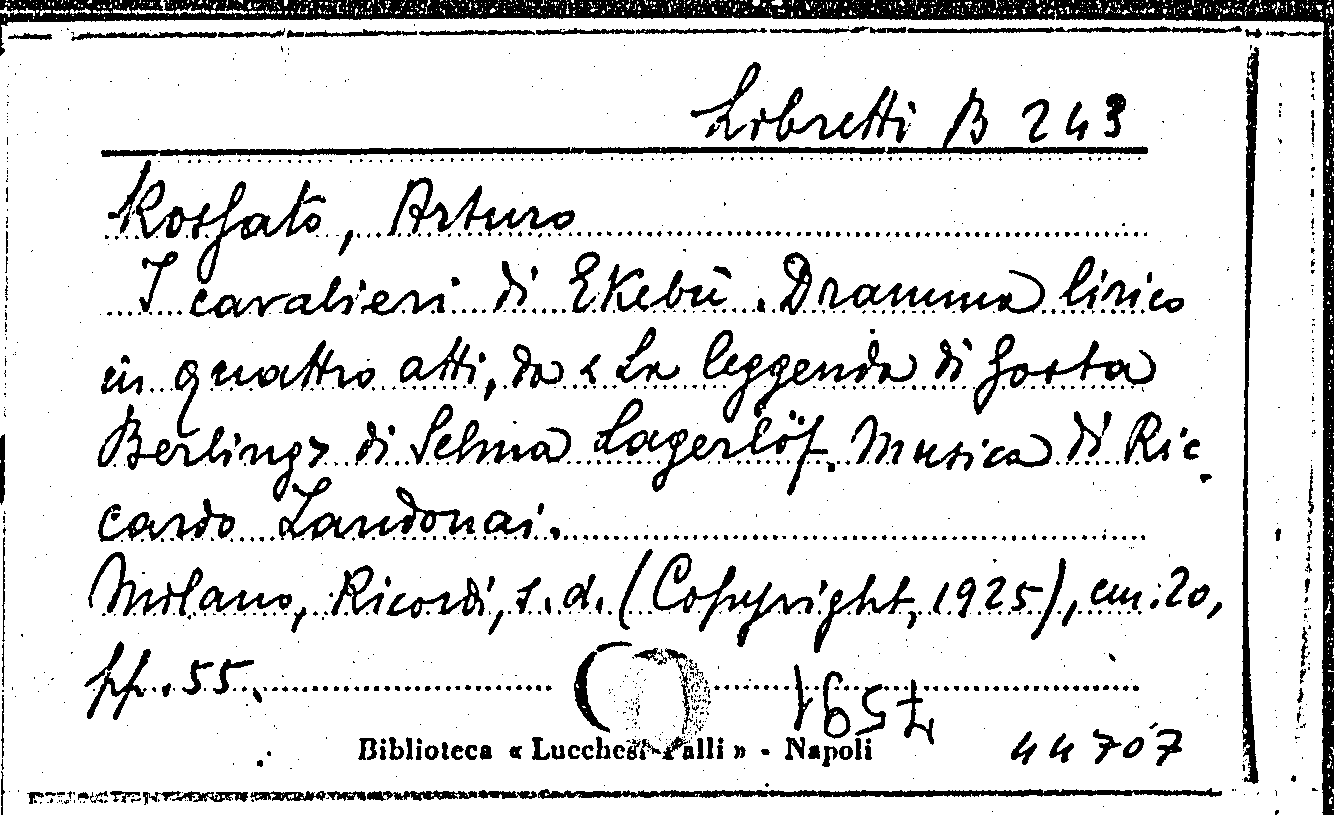 Libretti B 243
Rossato, Arturo
I cavalieri di Ekebù. Dramma lirico
in quattro atti, da « La leggenda di Gosta
Berling» di Selma Lagerlöf. Musica di Ric-
cardo Zandonai.
Milano, Ricordi, s.d. (Copyright, 1925), cm. 20,
pp. 55.
7591
Biblioteca « Lucchesi-Palli » - Napoli
44707